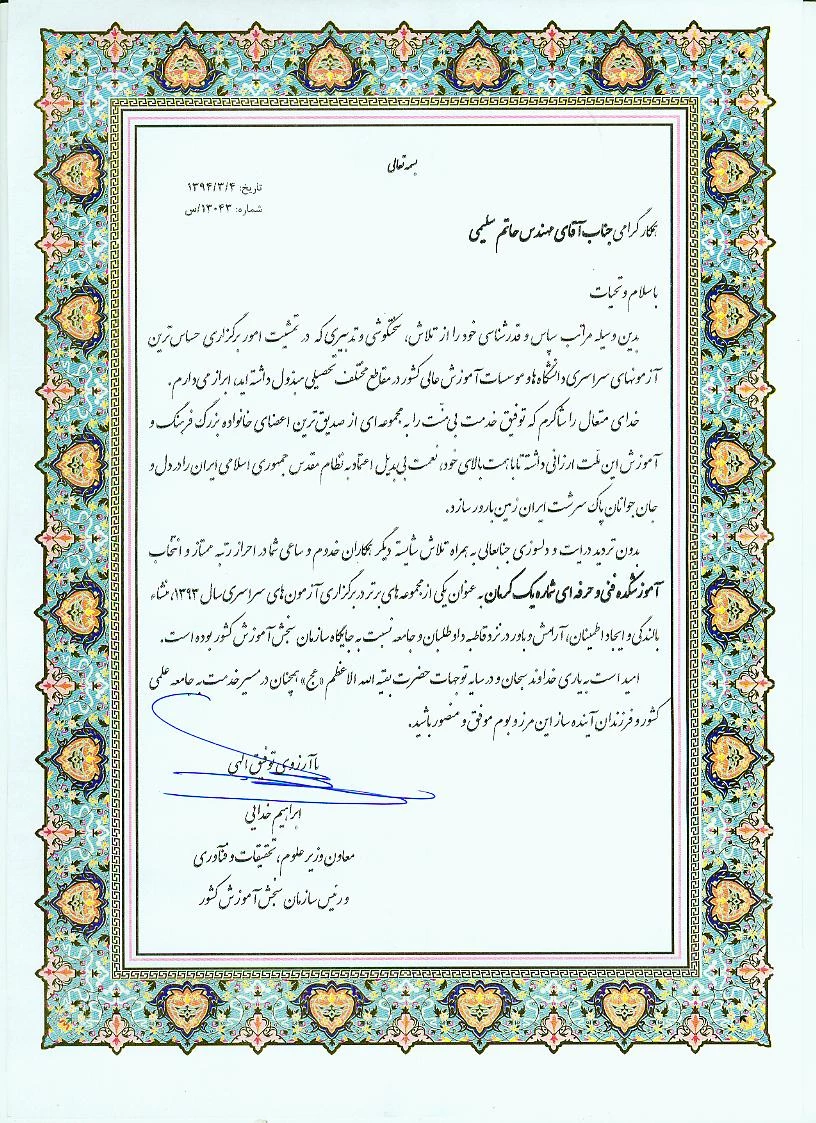 بسمه تعالی
تاریخ: ۱۳۹۴/۳/۴
شماره: ۱۳۰۴۳/س
همکار گرامی جناب آقای مهندس حاتم سلیمی
با سلام و تحیات
بدین وسیله مراتب سپاس و قدرشناسی خود را از تلاش، سختکوشی و تدبیری که در تمشیت امور برگزاری حساس ترین
آزمونهای سراسری دانشگاه ها و موسسات آموزش عالی کشور در مقاطع مختلف تحصیلی مبذول داشته اید، ابراز می دارم.
خدای متعال را شاکرم که توفیق خدمت بی منّت را به مجموعه ای از صدیق ترین اعضای خانواده بزرگ فرهنگ و
آموزش این ملّت ارزانی داشته تا با همت بالای خود، نعمت بی بدیل اعتماد به نظام مقدس جمهوری اسلامی ایران را در دل و
جان جوانان پاک سرشت ایران زمین بارور سازد.
بدون تردید درایت و دلسوزی جنابعالی به همراه تلاش شایسته دیگر همکاران خدوم و ساعی شما در احراز رتبه ممتاز و انتخاب
آموزشکده فنی و حرفه ای شماره یک کرمان به عنوان یکی از مجموعه های برتر در برگزاری آزمون های سراسری سال ۱۳۹۳، منشاء
بالندگی و ایجاد اطمینان، آرامش و باور در نزد قاطبه داوطلبان و جامعه نسبت به جایگاه سازمان سنجش آموزش کشور بوده است.
امید است به یاری خداوند سبحان و در سایه توجهات حضرت بقیه الله الاعظم «عج» همچنان در مسیر خدمت به جامعه علمی
کشور و فرزندان آینده ساز این مرز و بوم موفق و منصور باشید.
با آرزوی توفیق الهی
ابراهیم خدایی
معاون وزیر علوم، تحقیقات و فنّاوری
و رئیس سازمان سنجش آموزش کشور